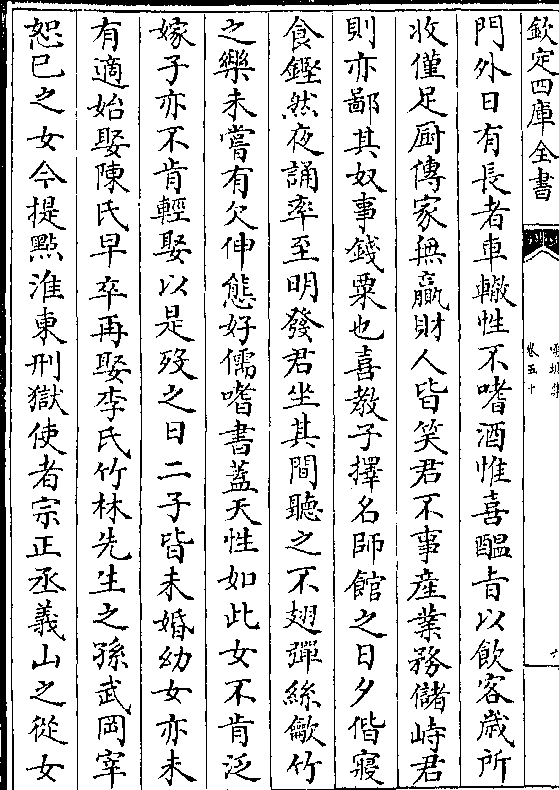 欽定四庫全書
卷五十
門外日有長者車轍性不嗜酒惟喜醖旨以飲客歲所
收僅足厨傳家無贏財人皆笑君不事産業務儲峙君
則亦鄙其奴事錢粟也喜教子擇名師館之日夕偕寢
食鏗然夜誦率至明發君坐其間聽之不翅彈絲龡竹
之樂未嘗有欠伸態好儒嗜書蓋天性如此女不肯泛
嫁子亦不肯輕娶以是歿之日二子皆未婚幼女亦未
有適始娶陳氏早卒再娶李氏竹林先生之孫武岡宰
恕已之女今提點淮東刑獄使者宗正丞義山之從女